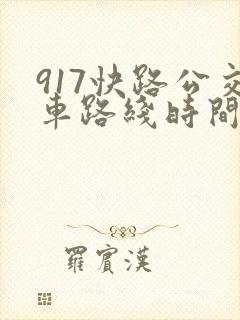 917快路公交
車路綫時間
羅賓漢